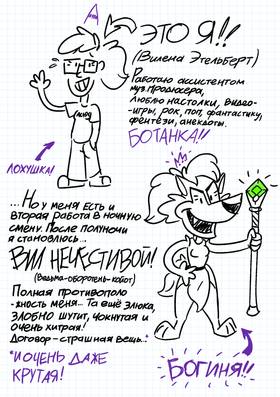 А
ЭТО Я!!
(Вилена Этельберт)
Работаю ассистентом
муз. продюсера,
люблю настолки, видео-
игры, рок, поп, фантастику,
фентези, анекдоты.
БОТАНКА!!
ЛОХУШКА!
...Но у меня есть и
вторая работа в ночную
смену. После полуночи
я становлюсь...
ВИЛ НЕЧЕСТИВОЙ!
(Ведьма-оборотень-койот)
Полная противополо
-жность меня... Та ещё злюка,
злобно шутит, чокнутая и
очень хитрая!
Договор - страшная вещь...*
*И ОЧЕНЬ ДАЖЕ
КРУТАЯ!
БОГИНЯ!!